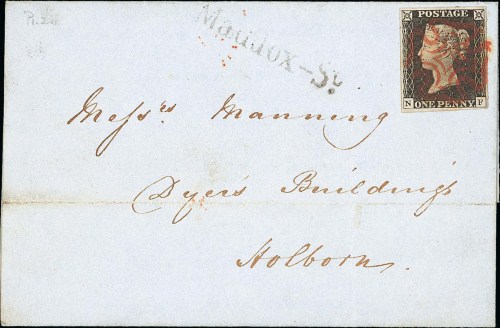 Maddox-St.
POSTAGE
N ONE PENNY F
Messrs Manning
Dyer's Buildings
Holborn.